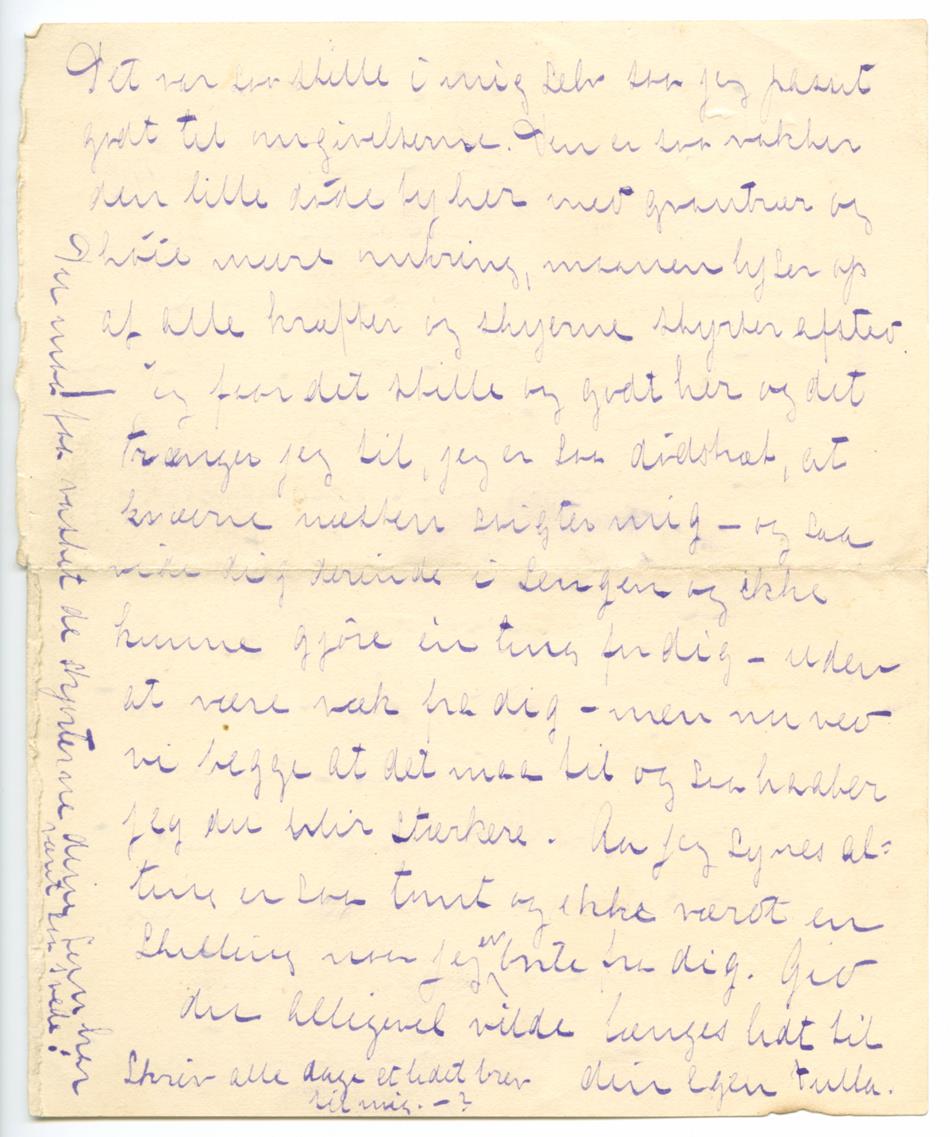 Det var saa stille i mig selv saa jeg passet
godt til omgivelserne. Den er saa vakker
den lille døde by her med grantrær og
høie mure omkring, maanen lyser op
af alle kræfter og skyerne styrter afsted.
Jeg faar det stille og godt her og det
trænger jeg til, jeg er saa dødstræt, at
knæerne næsten svigter mig – og saa
vide dig derinde i sengen og ikke
kunne gjøre én ting for dig – uden
at være væk fra dig – men nu ved
vi begge at det maa til og saa haaber
jeg du blir stærkere. Aa jeg synes al=
ting er saa tomt og ikke værdt en
skilling naar jeg er borte fra dig. Giv
du alligevel vilde længes lidt til
din egen Tulla.
Skriv alle dage et lidet brev
til mig. – ?
Du maa faa vasket de skjorterne dine som har
været saa svede!